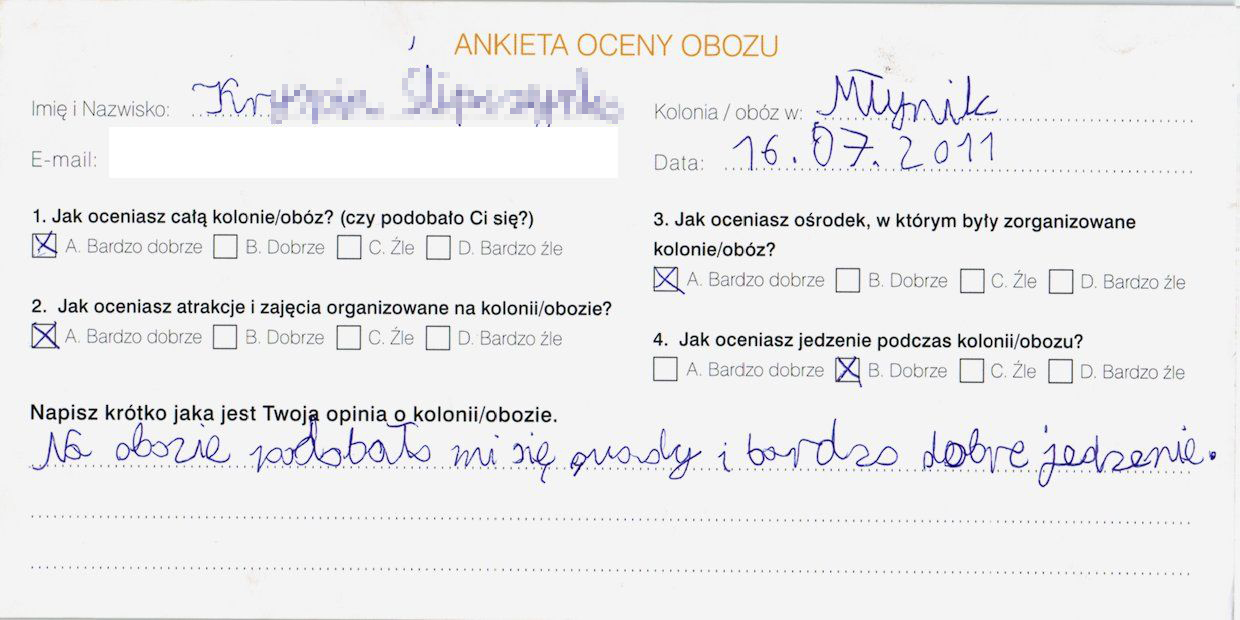 ANKIETA OCENY OBOZU
Imię i Nazwisko:
Kolonia / obóz w: Młynik
E-mail:
Data: 16.07.2011
1. Jak oceniasz całą kolonie/obóz? (czy podobało Ci się?)
A. Bardzo dobrze B. Dobrze C. Źle D. Bardzo źle
2. Jak oceniasz atrakcje i zajęcia organizowane na kolonii/obozie?
A. Bardzo dobrze B. Dobrze C. Źle D. Bardzo źle
3. Jak oceniasz ośrodek, w którym były zorganizowane
kolonie/obóz?
A. Bardzo dobrze B. Dobrze C. Źle D. Bardzo źle
4. Jak oceniasz jedzenie podczas kolonii/obozu?
A. Bardzo dobrze B. Dobrze C. Źle D. Bardzo źle
Napisz krótko jaka jest Twoja opinia o kolonii/obozie.
Na obozie podobało mi się quady i bardzo dobre jedzenie.